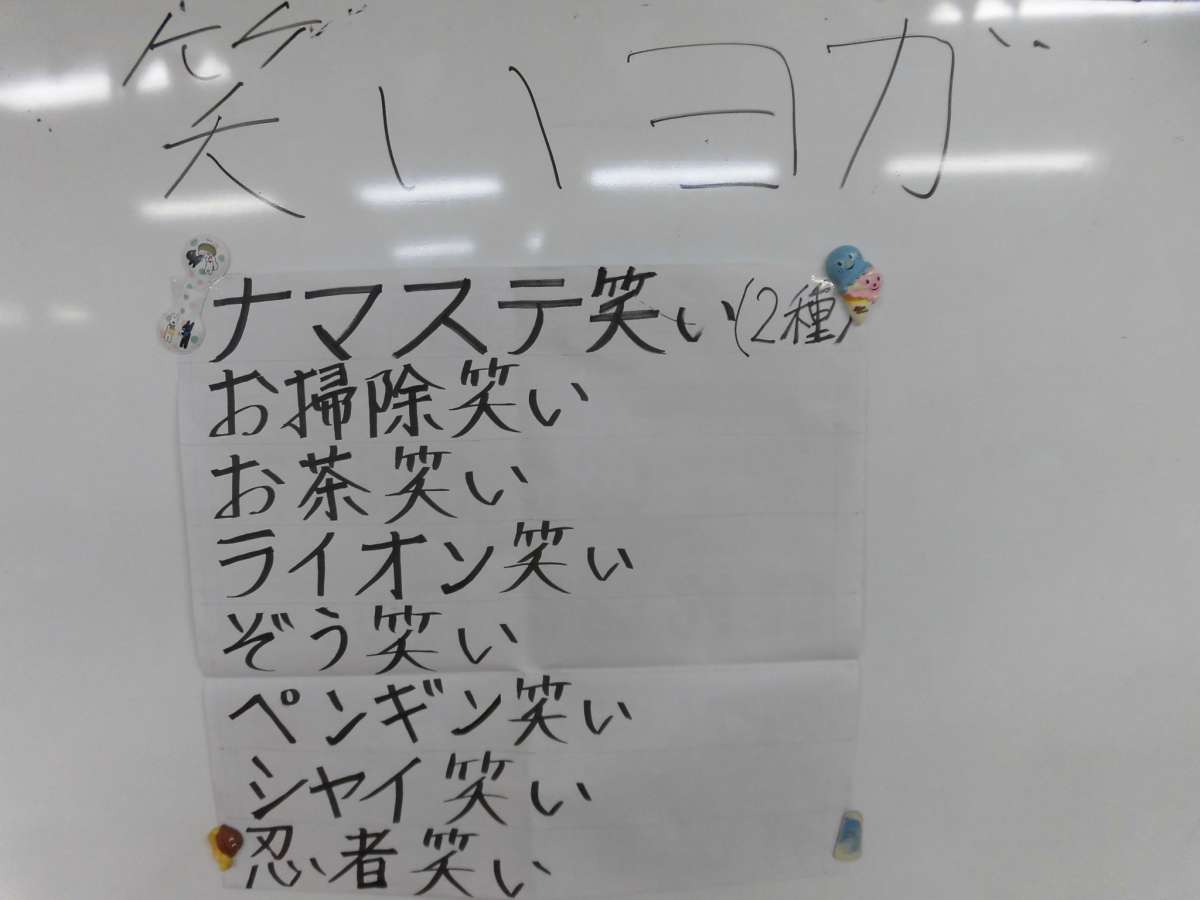 笑いヨガ
ナマステ笑い(2種)
お掃除笑い
お茶笑い
ライオン笑い
ぞう笑い
ペンギン笑い
シャイ笑い
忍者笑い